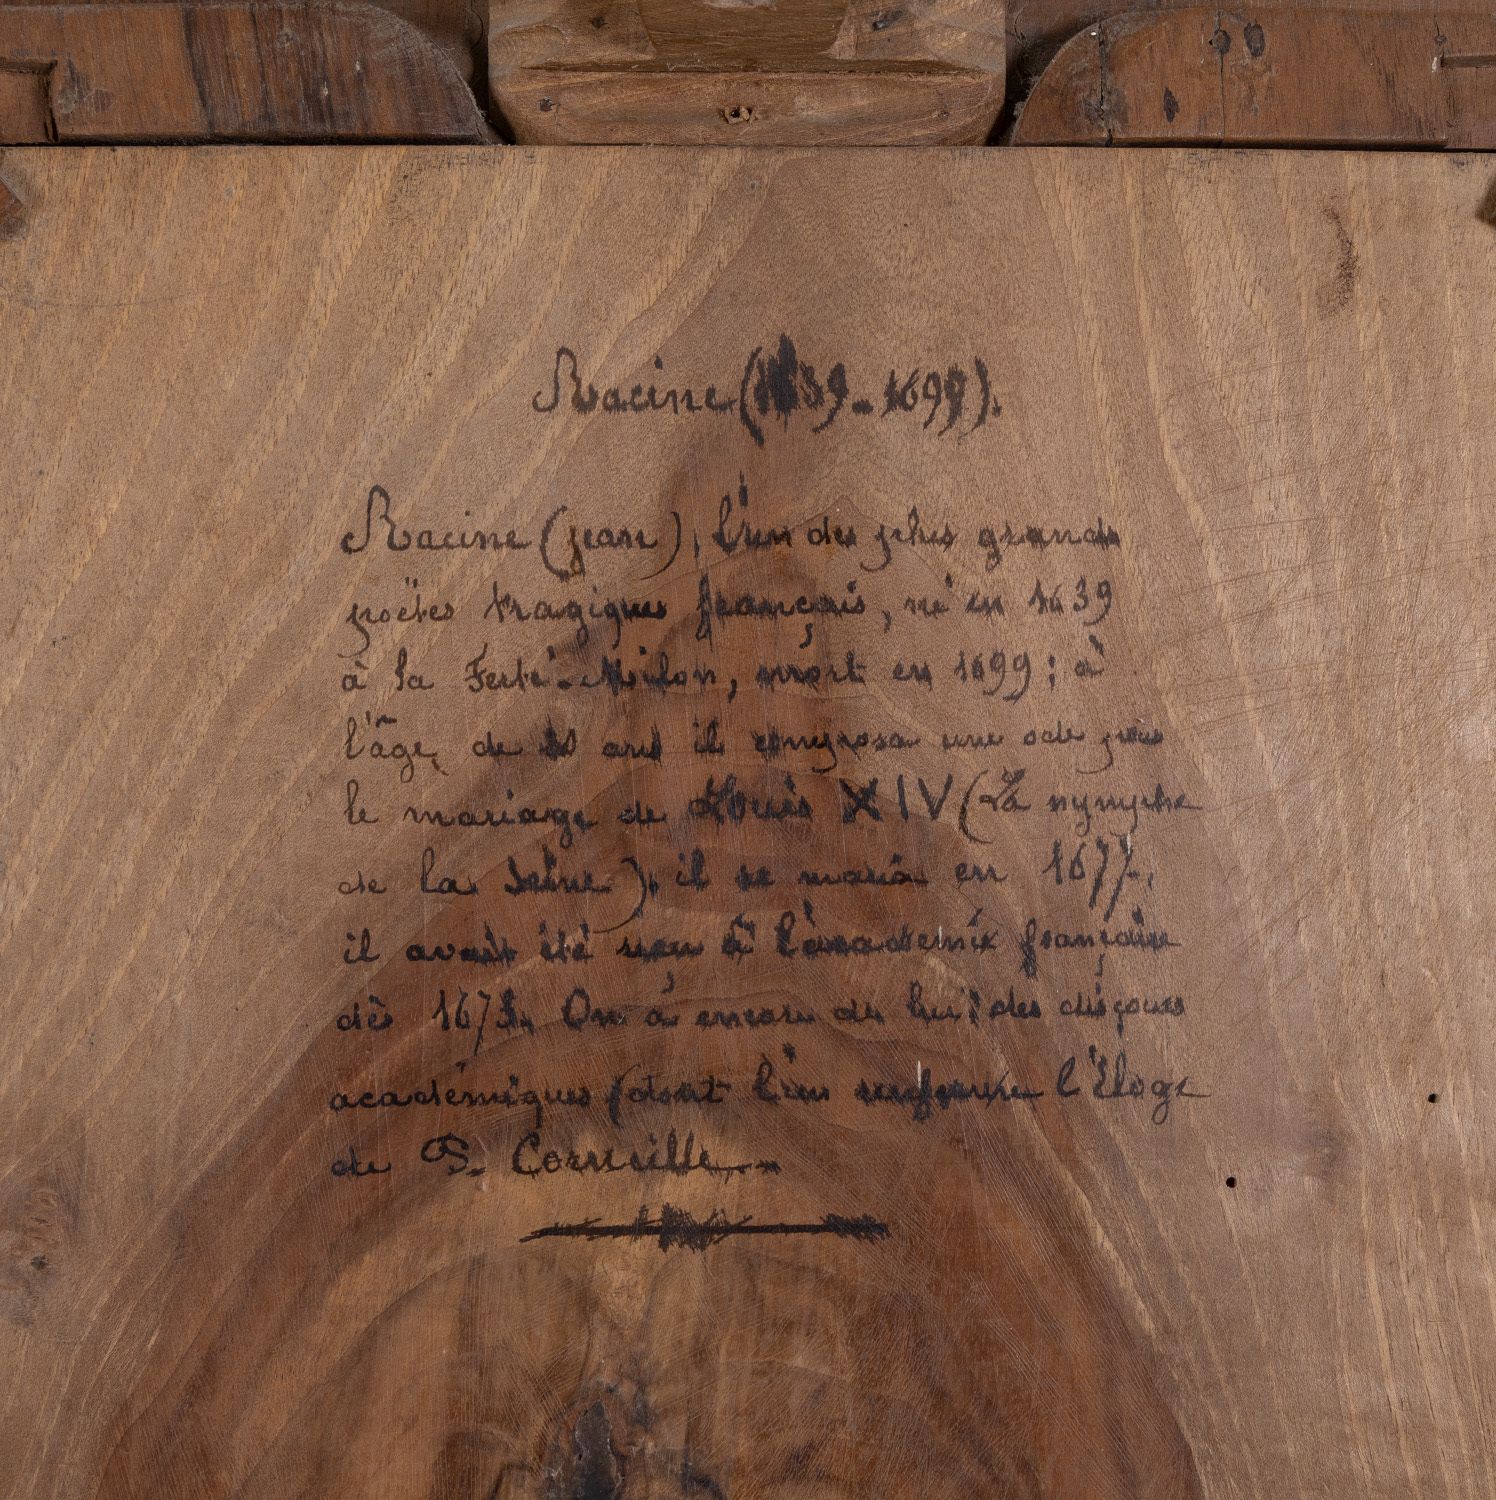 Racine (1639 - 1699).
Racine (jean), l'un des plus grands
poëtes tragiques français, né en 1639
à la Ferté-Milon, mort en 1699 ; à
l'âge de ans il composa une ode pour
le mariage de Louis XIV (La nymphe
de la seine), il se maria en 1677,
il avait été reçu à l'académie française
dès 1673. On a encore de lui : des discours
académiques (dont l'un renferme l'Éloge
de P. Corneille.